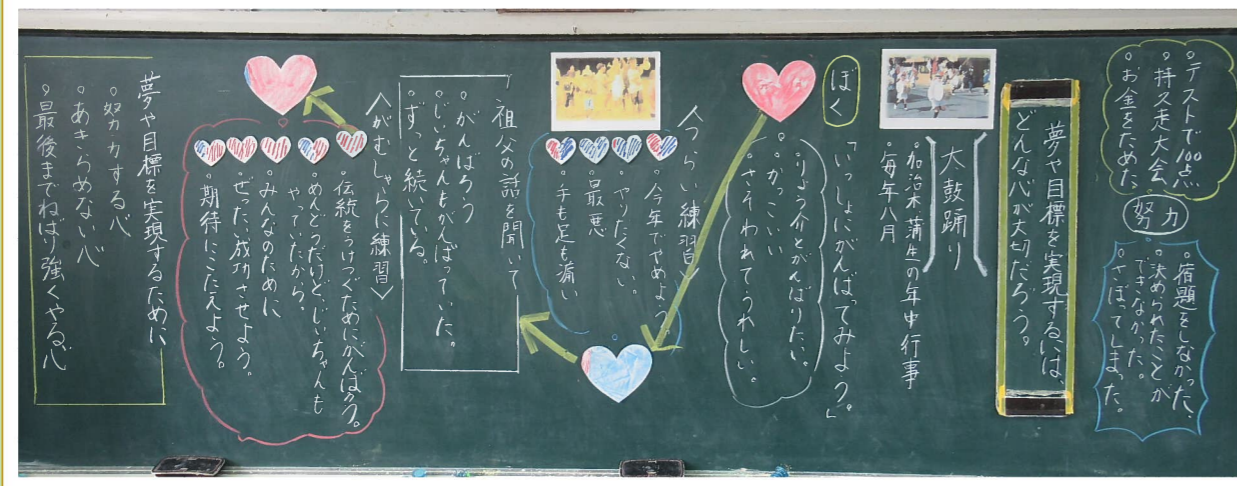 ・テストで100点
・持久走大会
・お金をためた
努力
・宿題をしなかった。
・決められたことが
できなかった。
・さぼってしまった。
夢や目標を実現するには、
どんな心が大切だろう。
太鼓踊り
・加治木蒲生の年中行事
・毎年八月
ぼく
「いっしょにがんばってみよう。」
・りょう介とがんばりたい。
・かっこいい
・さそわれてうれしい。
〈つらい練習〉
・今年でやめよう。
・やりたくない。
・最悪
・手も足も痛い
祖父の話を聞いて
・がんばろう
・じいちゃんもがんばっていた。
・ずっと続いている。
〈がむしゃらに練習〉
・伝統をうけつぐためにがんばろう。
・めんどうだけど、じいちゃんも
やっていたから。
・みんなのために
・ぜったい成功させよう。
・期待にこたえよう。
夢や目標を実現するために、
・努力する心
・あきらめない心
・最後までねばり強くやる心